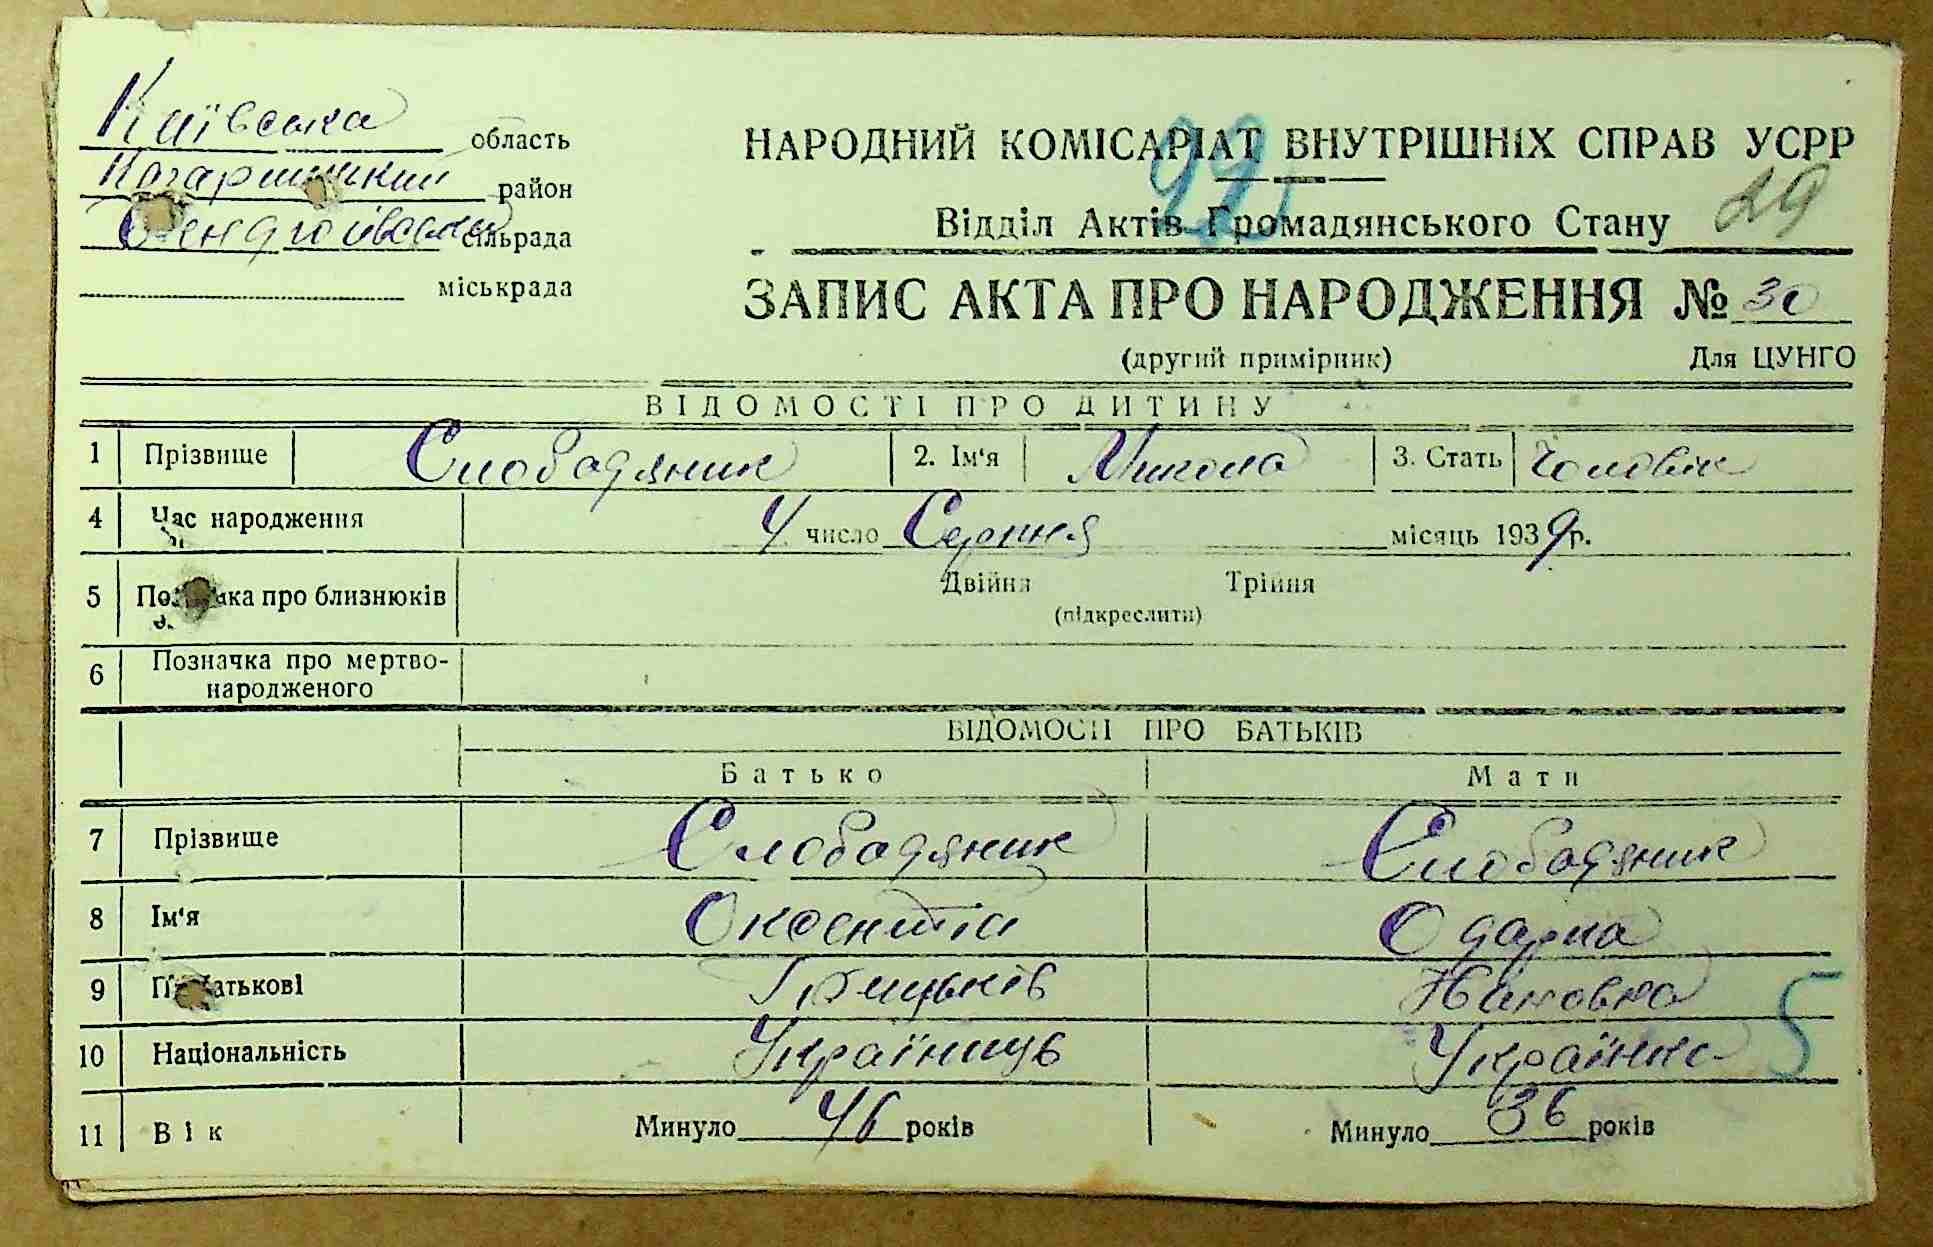 Київська область
Кагарлицький район
сільрада
міськрада
НАРОДНИЙ КОМІСАРІАТ ВНУТРІШНІХ СПРАВ УСРР
Відділ Актів Громадянського Стану 29
ЗАПИС АКТА ПРО НАРОДЖЕННЯ № 30
(другий примірник) Для ЦУНГО
ВІДОМОСТІ ПРО ДИТИНУ
1 Прізвище Слободяник 2. Ім'я Микола 3. Стать Чоловік
4 Час народження 4 число Серпня місяць 1939 р.
5 про близнюків Двійня Трійня
(підкреслити)
6 Позначка про мертво-
народженого
ВІДОМОСТІ ПРО БАТЬКІВ
Батько Мати
7 Прізвище Слободяник Слободяник
8 Ім'я Оксентій Одарка
9 По батькові Грицьків
10 Національність Українець Українка
5
11 Вік Минуло 46 років Минуло 36 років